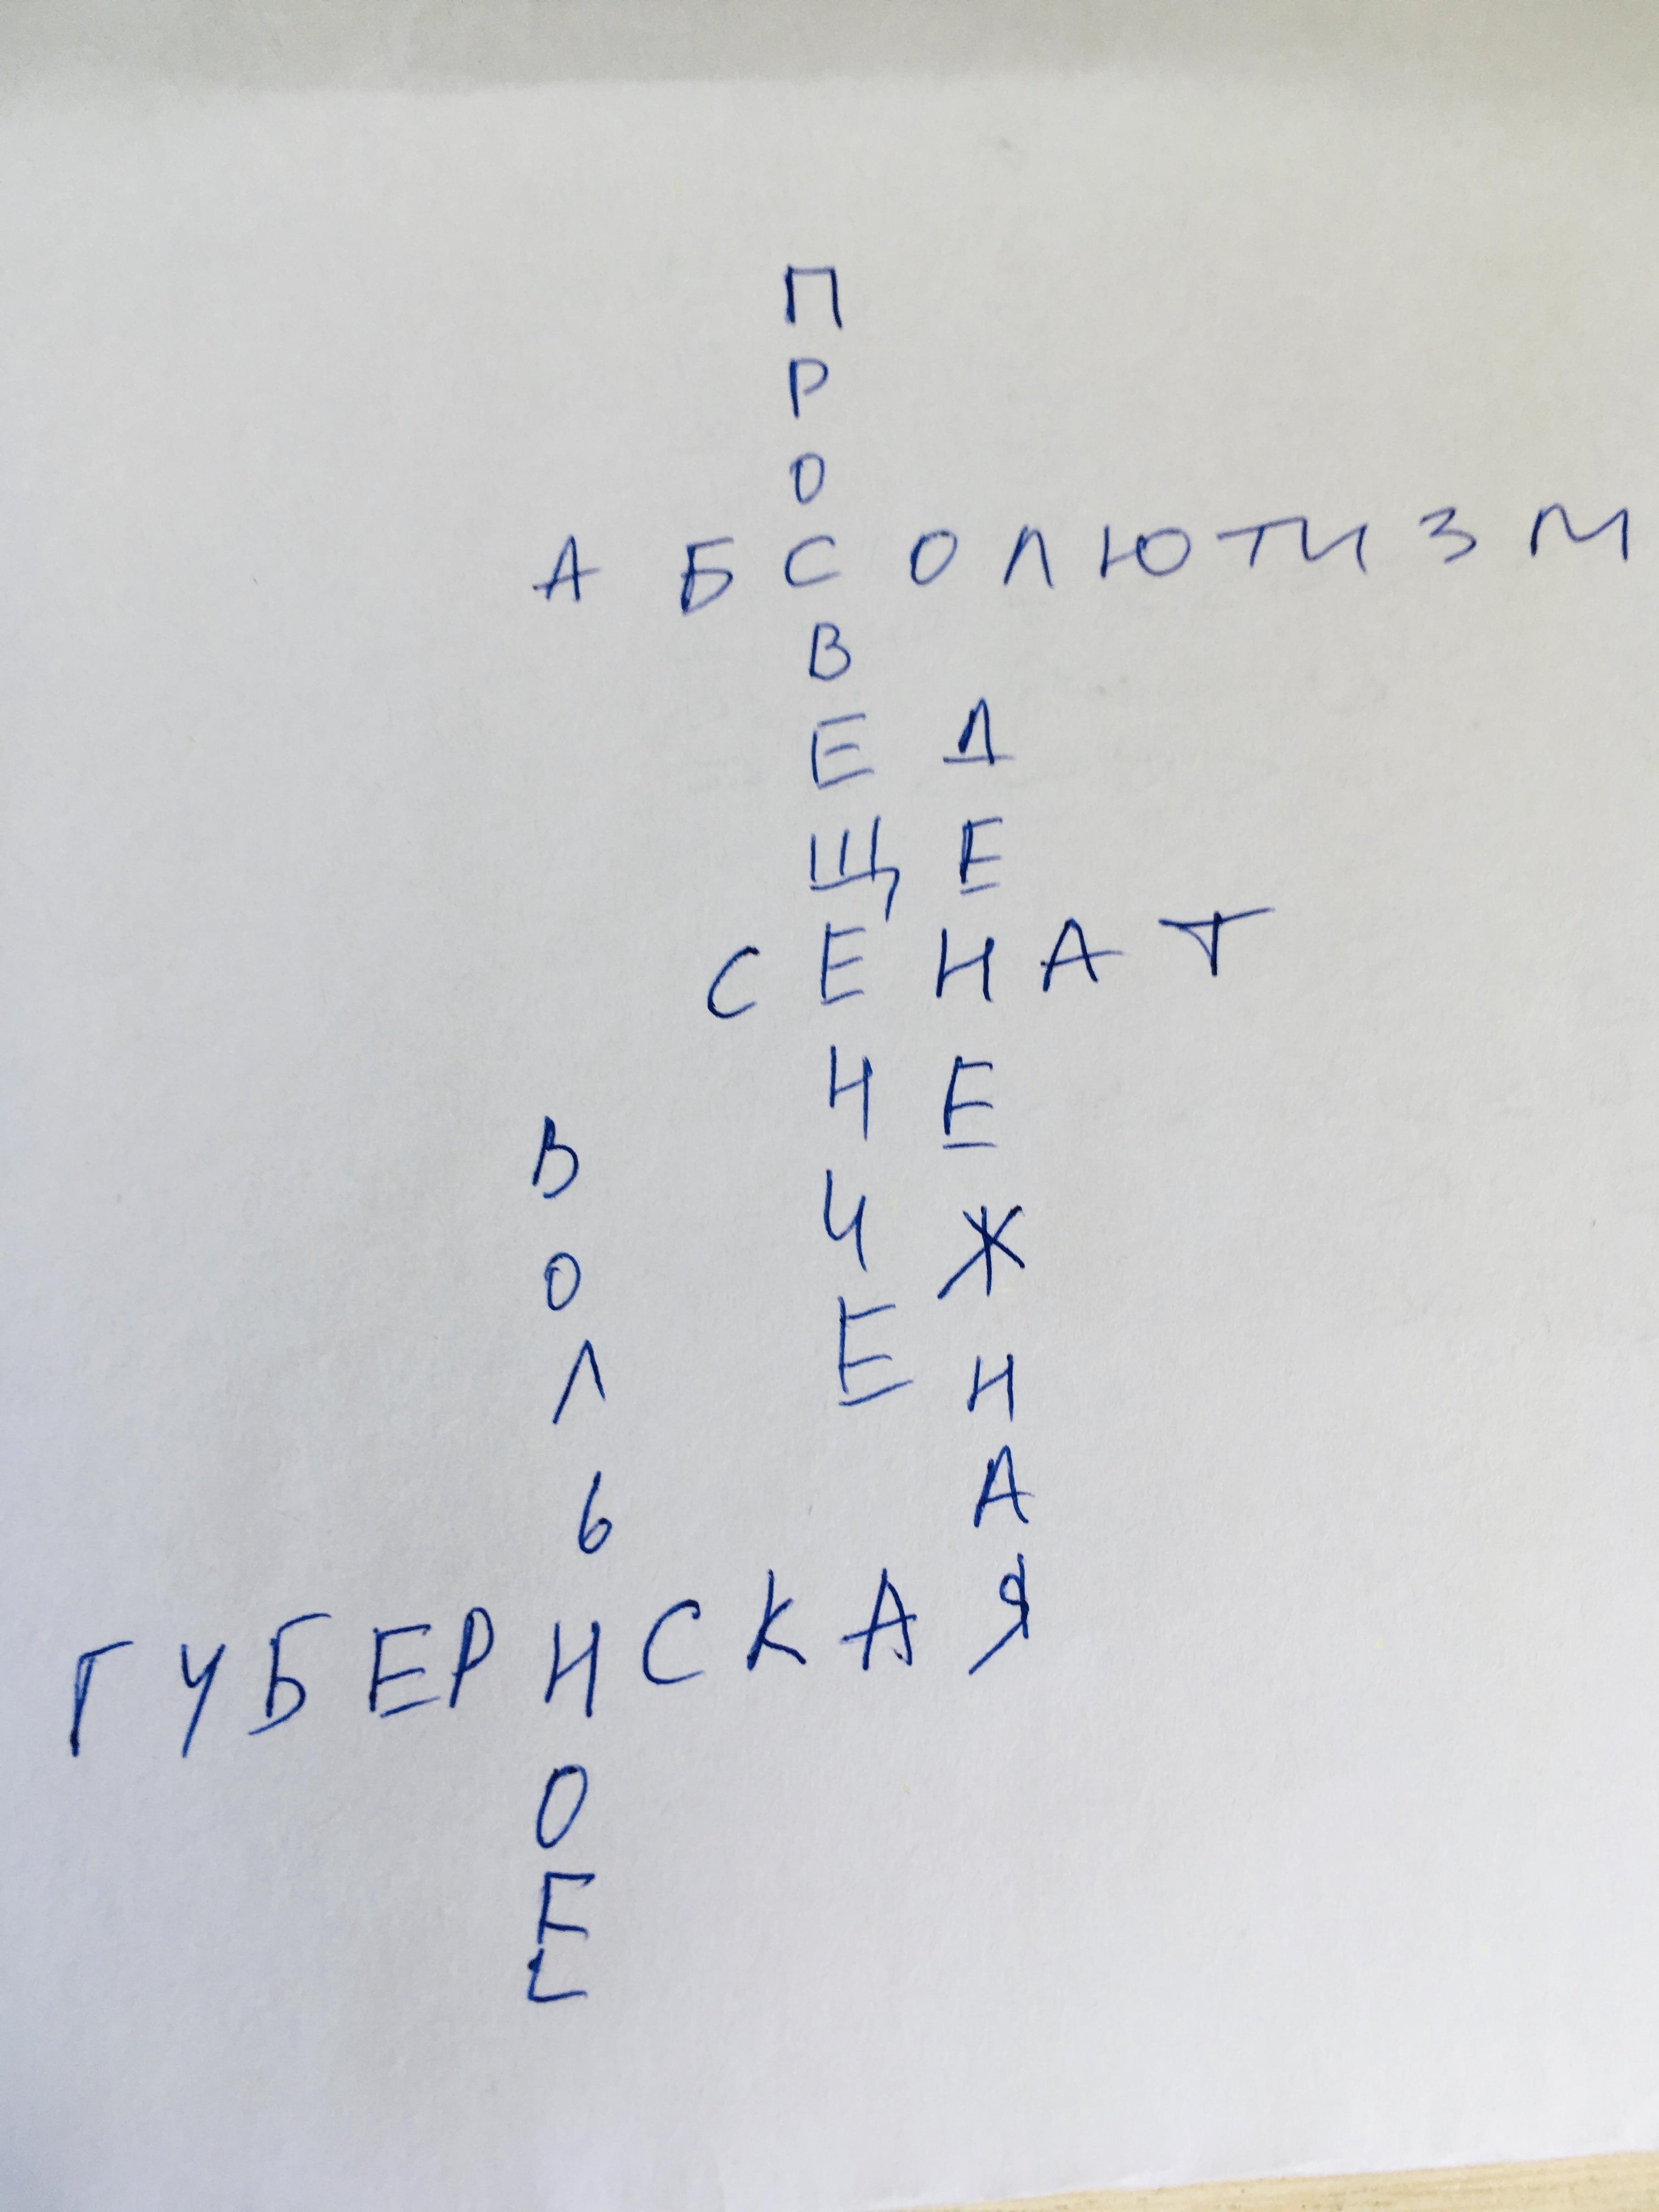 ПРОСВЕЩЕНИЕ
АБСОЛЮТИЗМ
ДЕНЕЖНАЯ
СЕНАТ
ВОЛЬНОЕ
ГУБЕРНСКАЯ